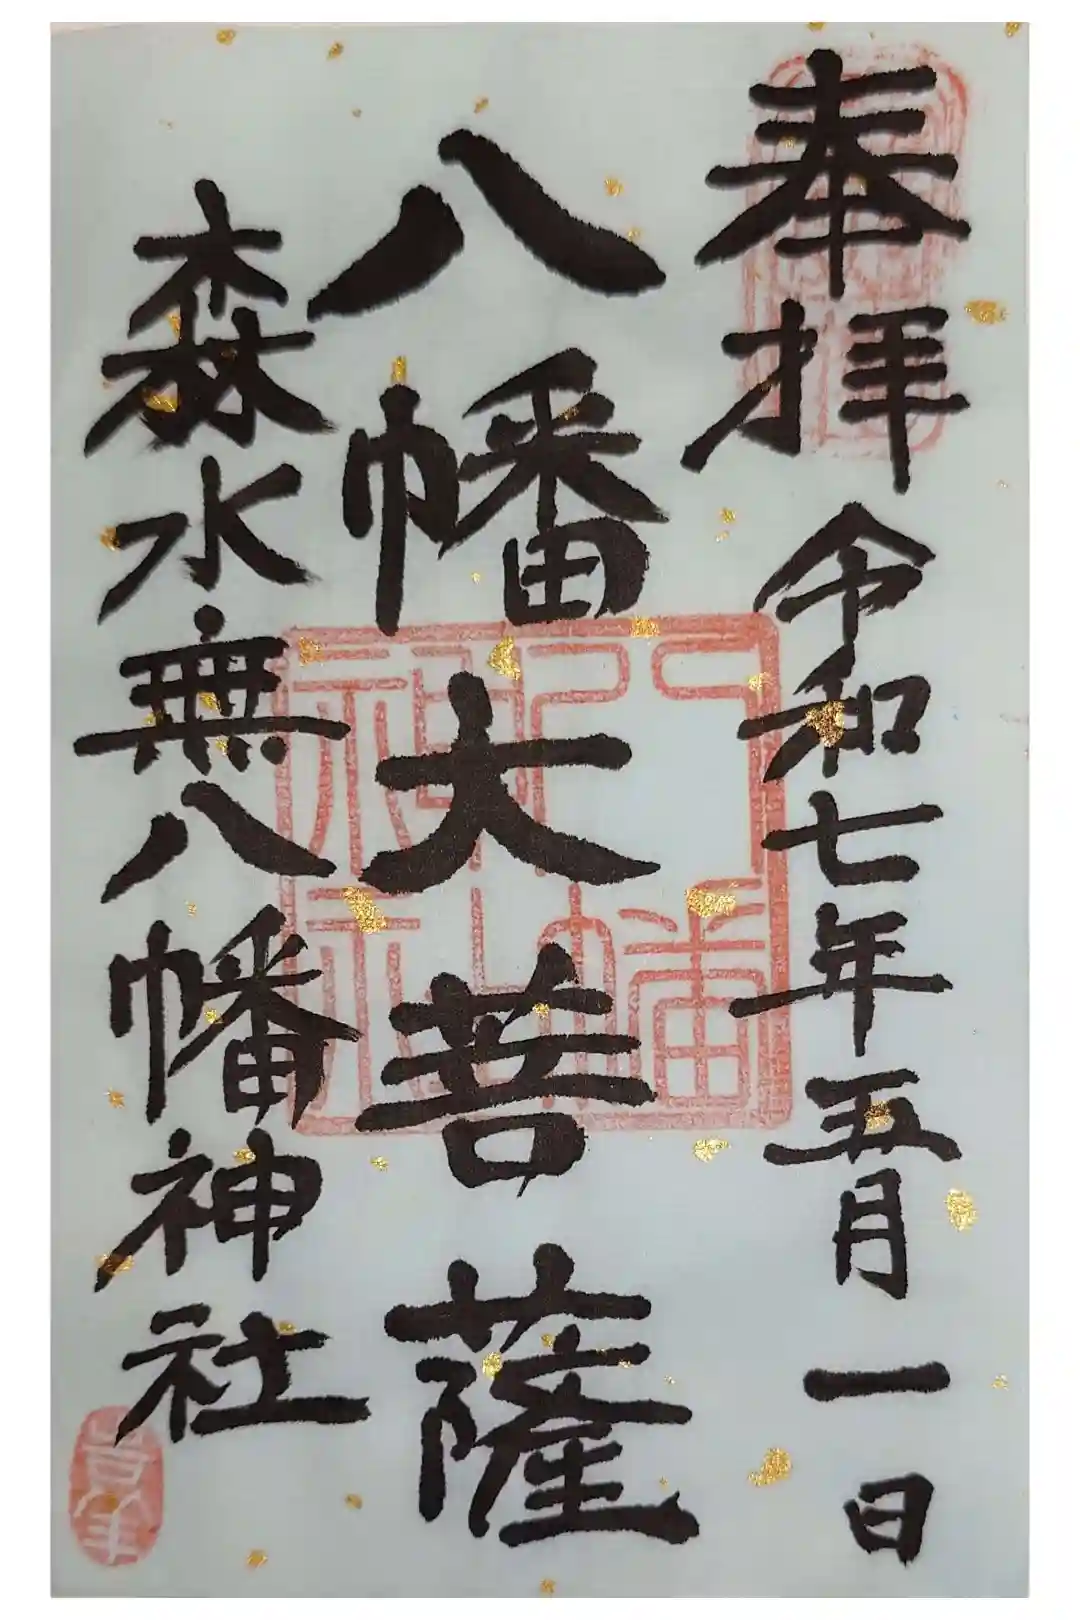 奉拝 令和七年五月一日
八幡大菩薩
森水無八幡神社